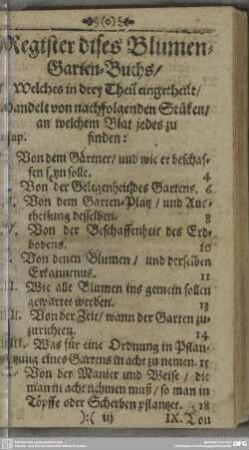 Register dises Blumen-
Garten-Buchs/
Welches in drey Theil eingetheilt/
handelt von nachfolgenden Stüken/
an welchem Blat jedes zu
Cap. finden:
Von dem Gärtner/ und wie er beschaf-
fen seyn solle. 4
Von der Gelegenheit des Gartens. 6
Von dem Garten-Platz/ und Aus-
theilung desselben. 8
V. Von der Beschaffenheit des Erd-
bodens. 10
Von denen Blumen/ und derselben
Erkantnus. 11
I. Wie alle Blumen ins gemein sollen
gewartet werden. 13
II. Von der Zeit/ wann der Garten zu-
zurichten. 14
III. Was für eine Ordnung in Pflan-
tzung eines Gartens in acht zu nemen. 15
Von der Manier und Weise/ die
man in acht nehmen muß/ so man in
Töpffe oder Scherben pflantzet. 18
):( iij IX. Von